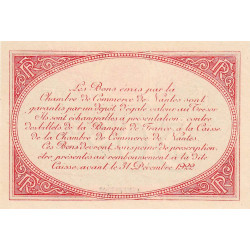 Les Bons émis par la
Chambre de Commerce de Nantes sont
garantis par un dépôt d'égale valeur au Trésor
Ils sont échangeables à présentation contre
des billets de la Banque de France, à la Caisse
de la Chambre de Commerce de Nantes.
Ces Bons devront, sous peine de prescription,
être présentés au remboursement à la dite
Caisse, avant le 31 Décembre 1922